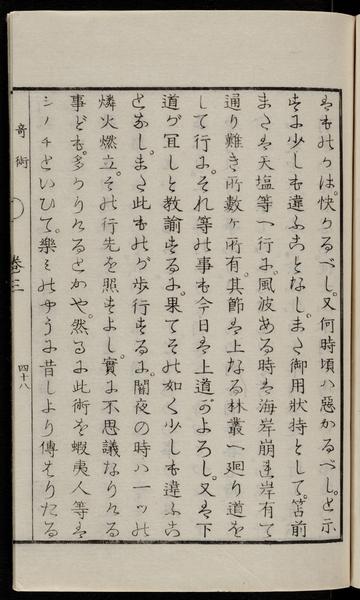 はものは。快かるべし。又何時頃ハ惡かるべし。と示
すに少しも違ふことなし。また御用状持として。苫前
または天塩等へ行に。風波ある時は海岸崩れ岸有て
通り難き所數ヶ所有。其節は上なる林叢へ廻り道を
して行に。それ等の事も今日は上道がよろし。又は下
道が冝しと教諭するに。果てその如く少しも違ふこ
となし。また此ものが歩行するに。闇夜の時ハ一ツの
燐火燃立。その行先を照すよし。實に不思議なりける
事ども。多かりけるとかや。然るに此術を蝦夷人等は
シノチといひて。樂ミのやうに昔しより傳はりたる
竒術
卷三
四十八